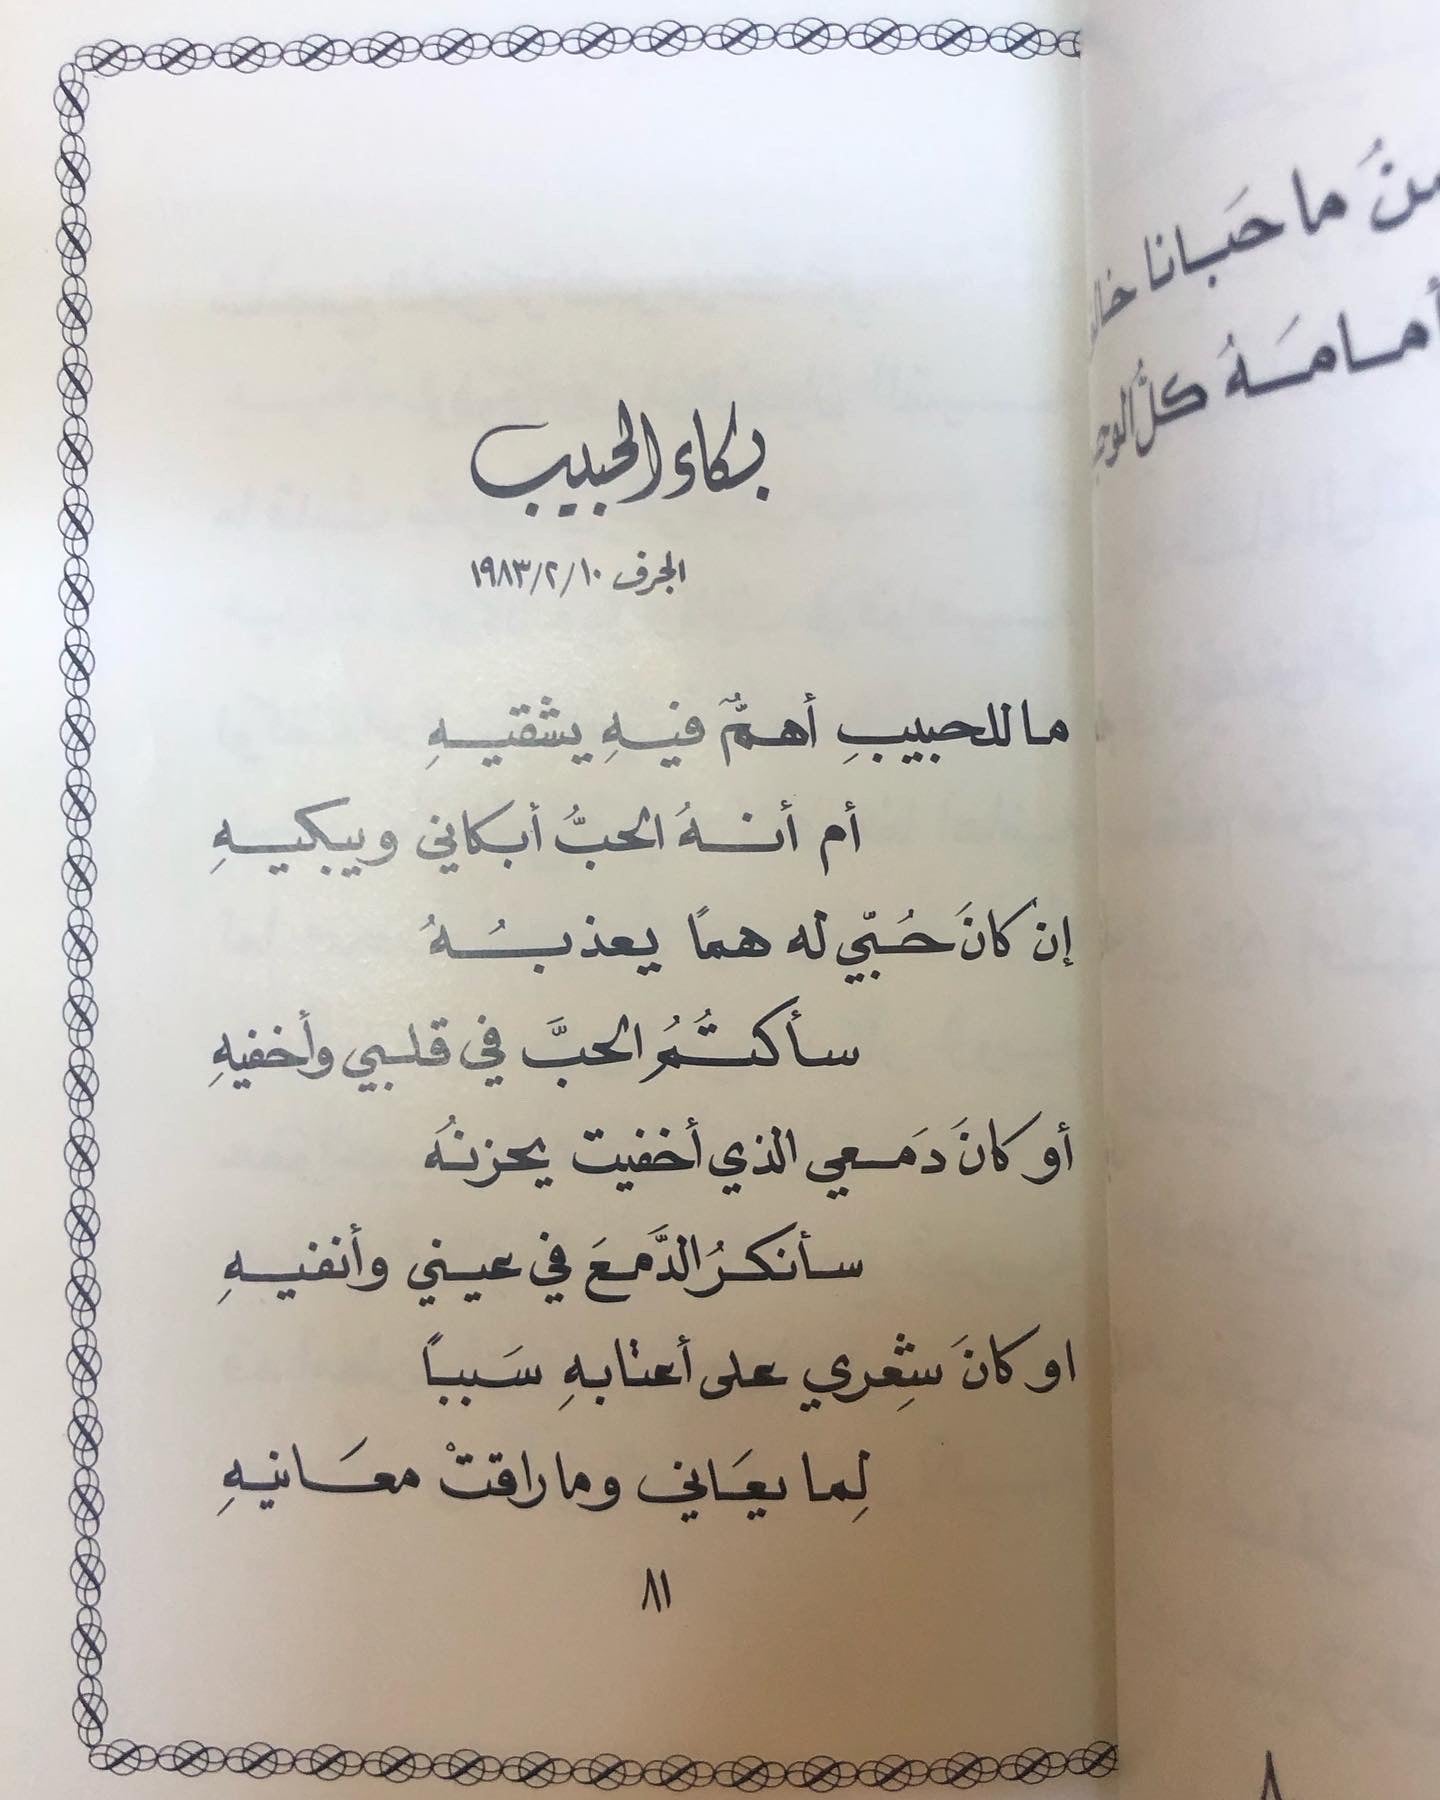 بكاء الحبيب
الجرف ١٠/٢/١٩٨٣
ما للحبيبِ أهمٌّ فيهِ يشقيهِ
أم أنهُ الحبُّ أبكاني ويبكيهِ
إن كانَ حُبّي له همًا يعذبُهُ
سأكتُمُ الحبَّ في قلبي وأخفيهِ
أو كانَ دَمعي الذي أخفيت يحزنهُ
سأنكرُ الدَّمعَ في عيني وأنفيهِ
او كانَ شِعري على أعتابهِ سَبباً
لِما يعَاني وما راقتْ معَانيهِ
٨١
ما حَبانا
أمامَهُ كلُّ